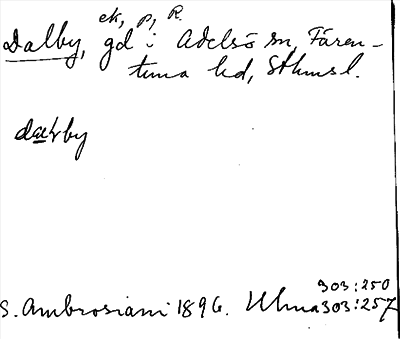 ek, p, R.
Dalby, gd i Adelsö sn, Fären-
tuna hd, Sthmsl.
dałby
303:250
S. Ambrosiani 1896. Ulma 303:257